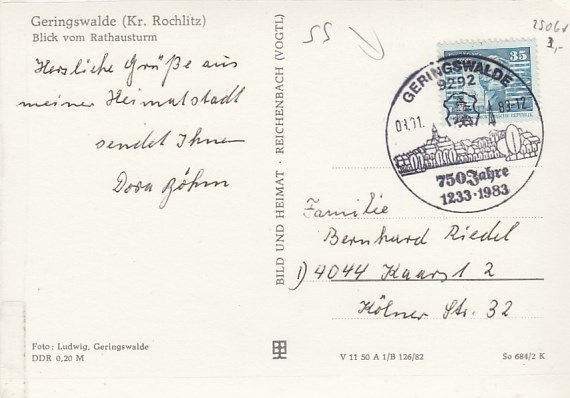 Geringswalde (Kr. Rochlitz)
Blick vom Rathausturm
Herzliche Grüße aus
meiner Heimatstadt
sendet Ihnen
Dora Böhm
Foto: Ludwig, Geringswalde
DDR 0,20 M
BILD UND HEIMAT · REICHENBACH (VOGTL)
55
35
GERINGSWALDE
9292
03.01. 83-12
750 Jahre
1233·1983
Familie
Bernhard Riedel
4044 Kaarst 2
Kölner Str. 32
V 11 50 A 1/B 126/82
So 684/2 K